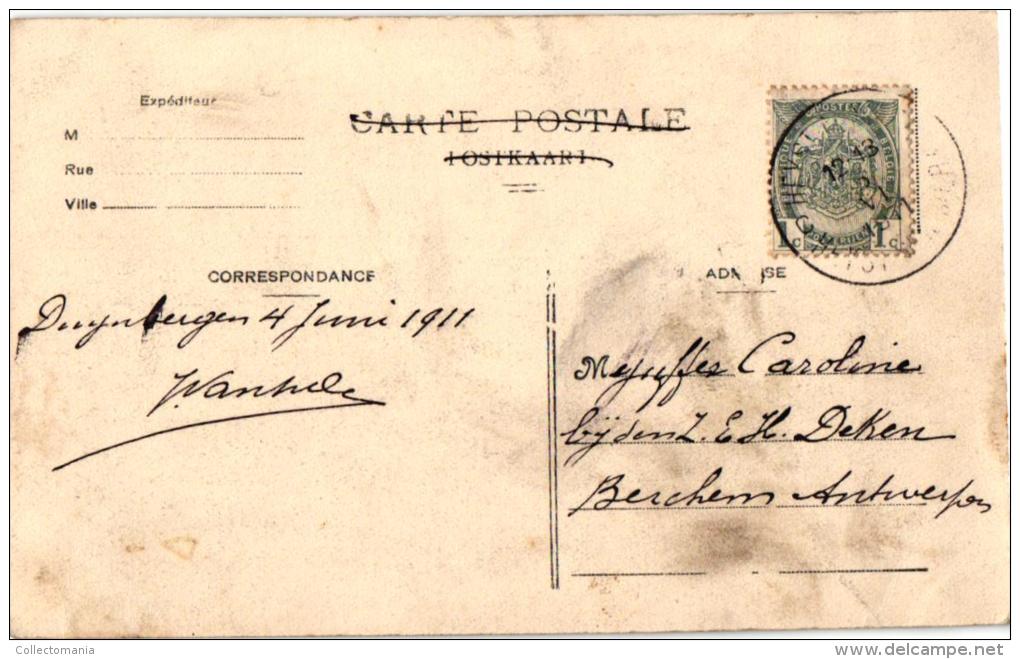 Expéditeur
M
Rue
Ville
CARTE POSTALE
POSTKAART
POSTES
BELGIQUE
BELGIE
1 c. 1 c.
12-13
CORRESPONDANCE
ADRESSE
Duynbergen 4 Juni 1911
Mejuffer Caroline
bij den Z. E. H. Deken
Berchem Antwerpen
Collectomania
www.delcampe.net